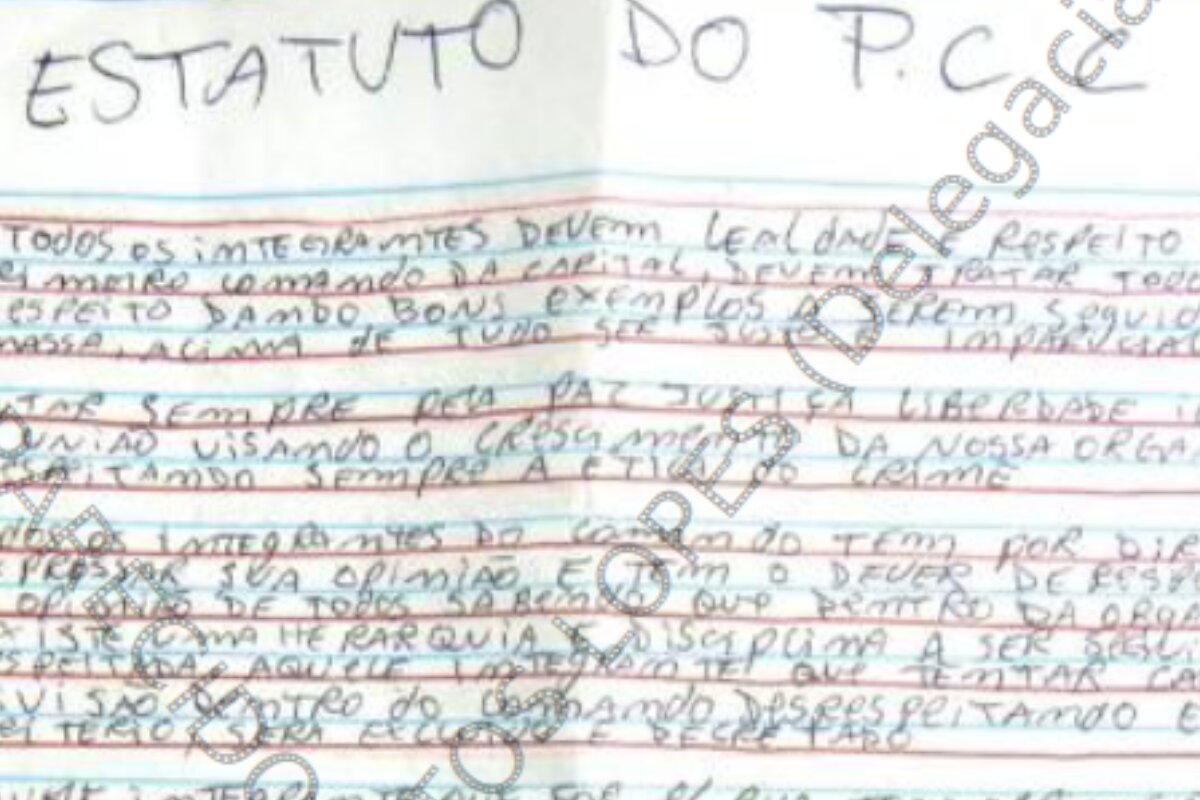 ESTATUTO DO P.C.C
TODOS OS iNTEGRANTES DEVEM LEALDADE E RESPEITO
COMANDO DA CAPITAL, DEVEM TRATAR TODO
ESPEITO DANDO BONS EXEMPLOS A SEREM SEGUIDO
MASSA, ACIMA DE TUDO SER JUSTO E IMPARCIAL
UTAR SEMPRE PELA PAZ JUSTIÇA LIBERDADE i
UNIÃO VISANDO O CRESCIMENTO DA NOSSA ORGA
ESPEITANDO SEMPRE A ETICA DO CRIME
OS INTEGRANTES DO COMANDO TEM POR DIR
XPRESSAR SUA OPINIÃO E TEM O DEVER DE RESPE
OPINIÃO DE TODOS SABENDO QUE DENTRO DA ORGA
XISTE UMA HERARQUIA E DISCIPLINA A SER SEGUI
ESPEITADA AQUELE INTEGRANTE QUE TENTAR CA
VISÃO DENTRO DO COMANDO DESRESPEITANDO E
SERÁ EXCLUIDO E DECRETADO
INTEGRANTE QUE FOR
LOPES (Delegacia